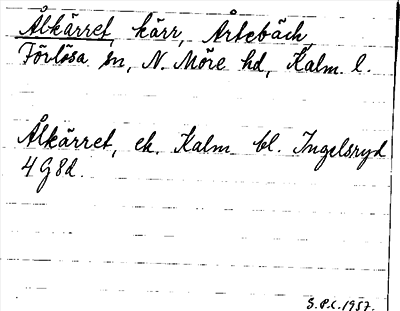 Ålkärret, kärr, Årtebäck,
Förlösa sn, N. Möre hd, Kalm. l.
Ålkärret, ek. Kalm. bl. Ingelsryd
4 G 8d.
S.P.C. 1957.